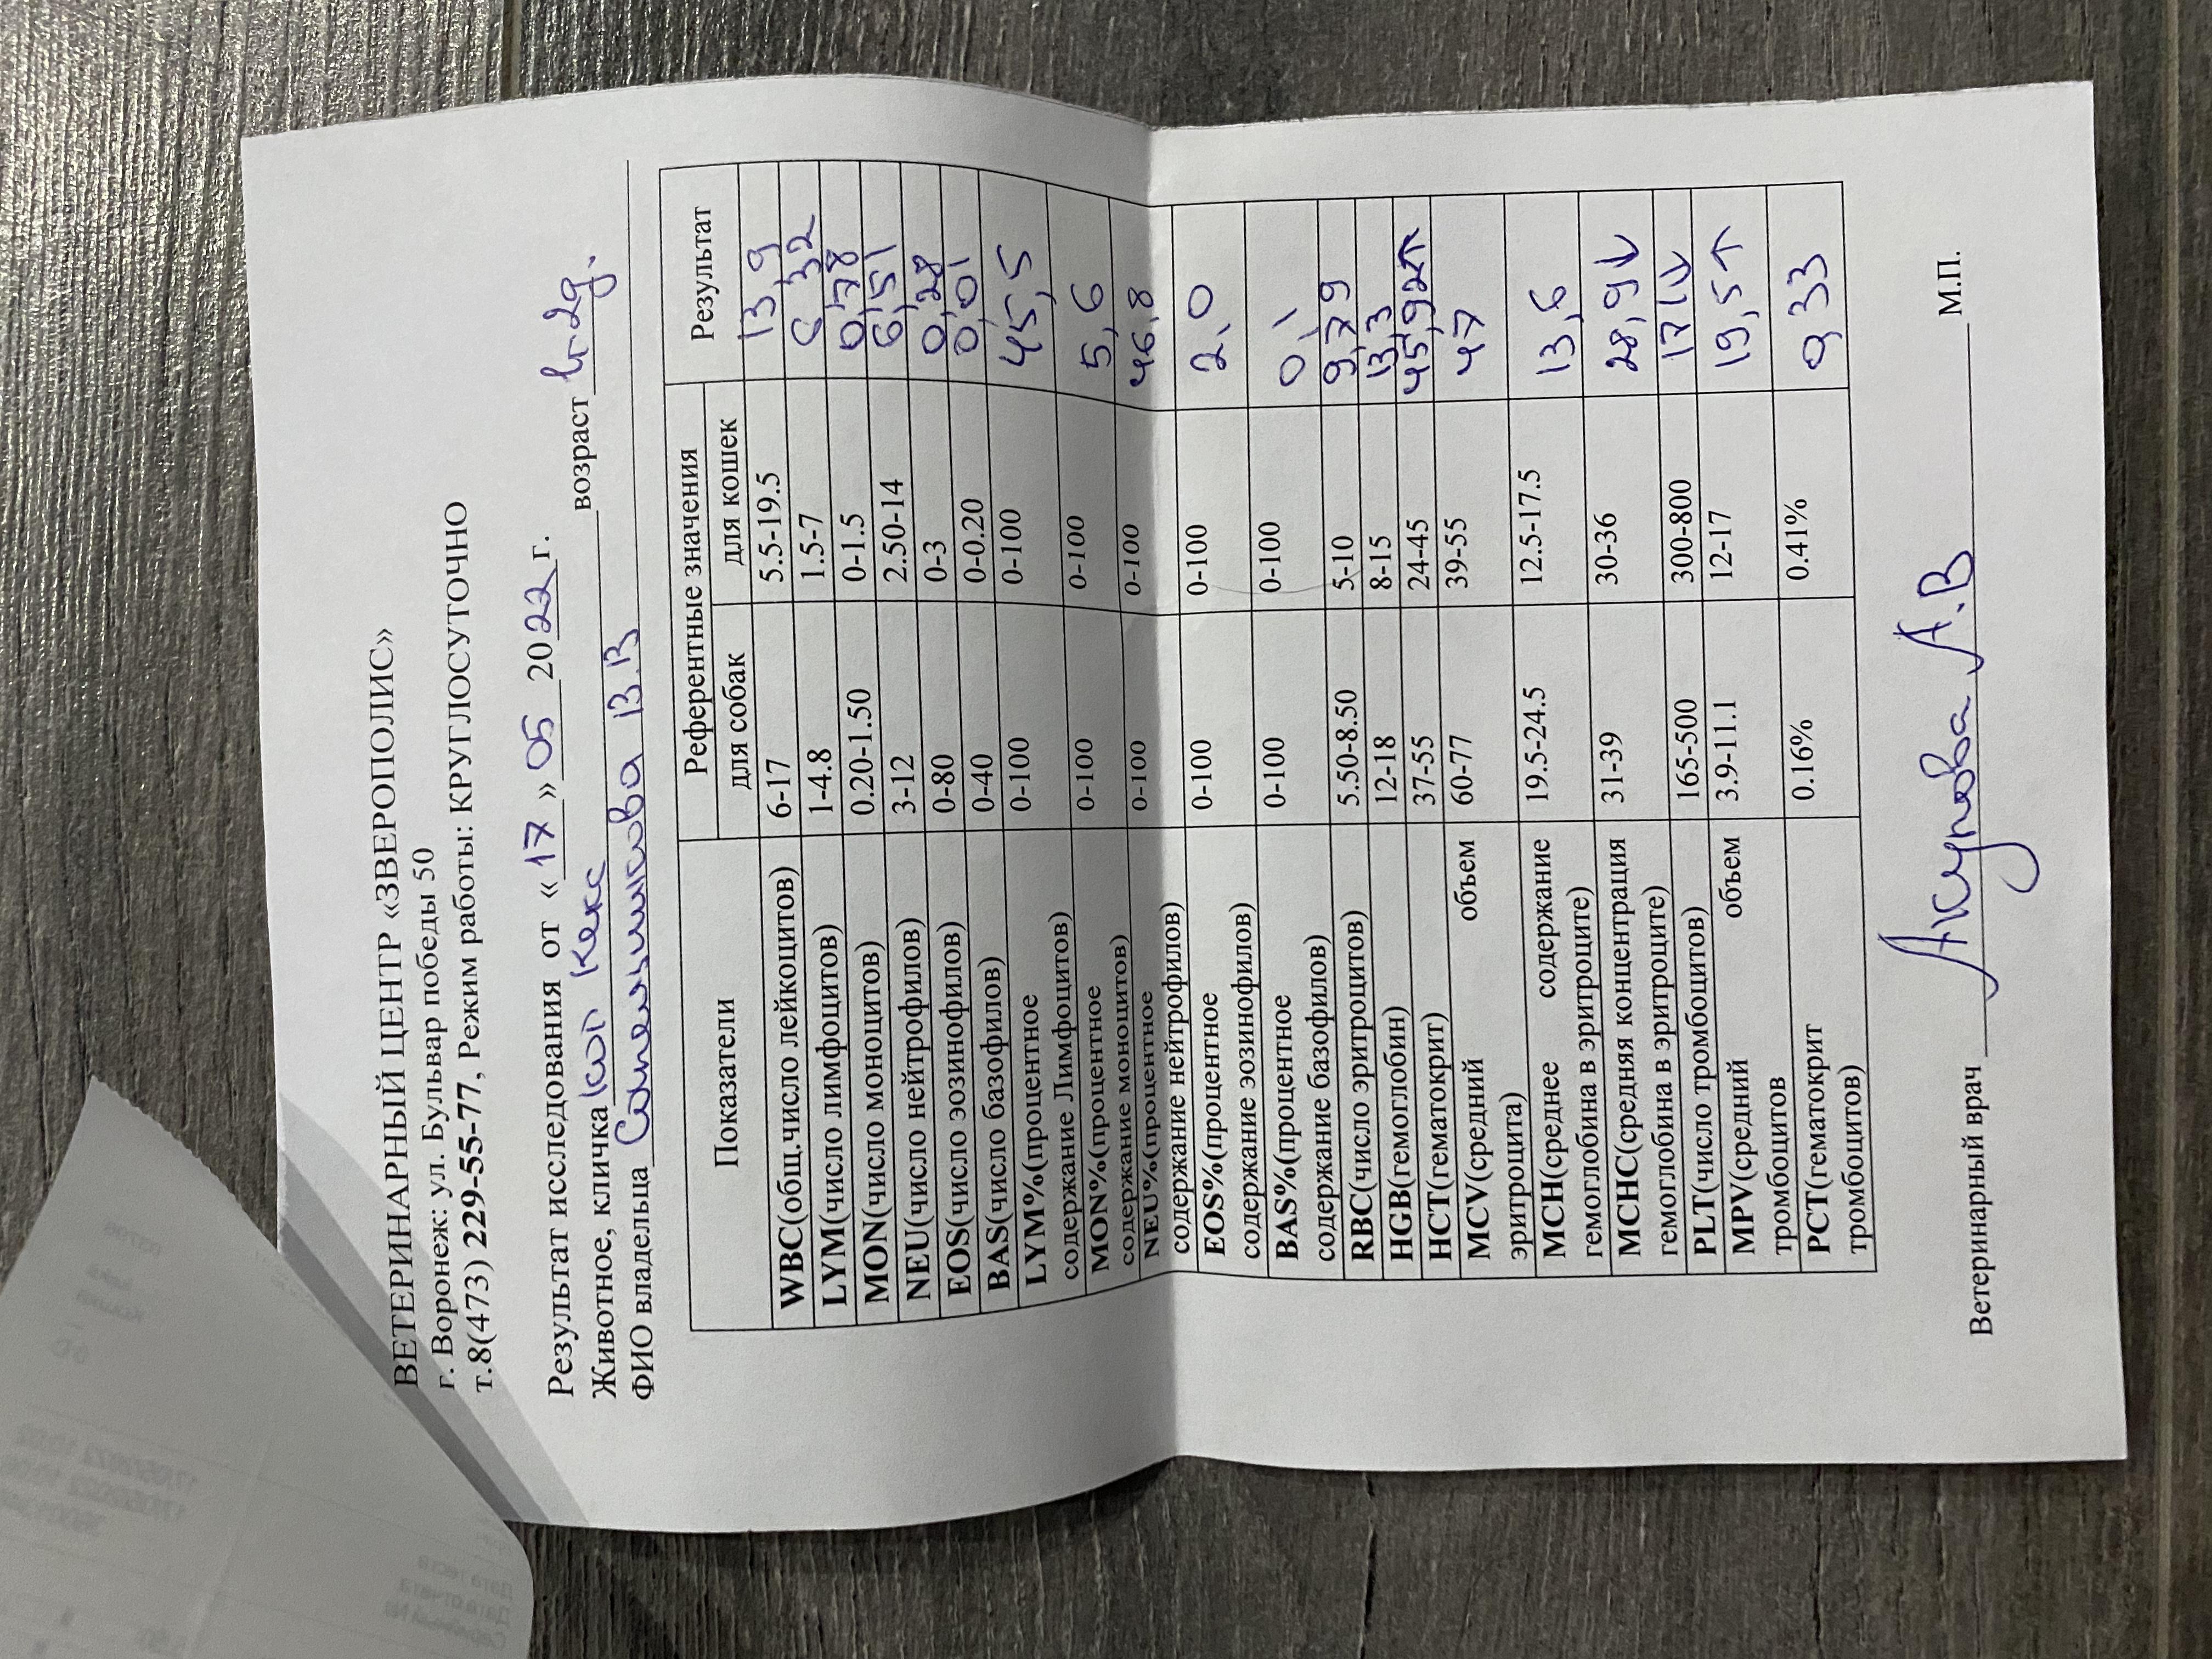 ВЕТЕРИНАРНЫЙ ЦЕНТР «ЗВЕРОПОЛИС»
г. Воронеж: ул. Бульвар победы 50
т.8(473) 229-55-77, Режим работы: КРУГЛОСУТОЧНО
Результат исследования от «17» 05 2022 г.
Животное, кличка кот Кекс возраст
ФИО владельца В.В
Показатели Референтные значения Результат
для собак для кошек
WBC(общ.число лейкоцитов) 6-17 5.5-19.5 13,9
LYM(число лимфоцитов) 1-4.8 1.5-7 6,32
MON(число моноцитов) 0.20-1.50 0-1.5 0,78
NEU(число нейтрофилов) 3-12 2.50-14 6,51
EOS(число эозинофилов) 0-80 0-3 0,28
BAS(число базофилов) 0-40 0-0.20 0,01
LYM%(процентное 0-100 0-100 45,5
содержание Лимфоцитов)
MON%(процентное 0-100 0-100 5,6
содержание моноцитов)
NEU%(процентное 0-100 0-100 46,8
содержание нейтрофилов)
EOS%(процентное 0-100 0-100 2,0
содержание эозинофилов)
BAS%(процентное 0-100 0-100 0,1
содержание базофилов)
RBC(число эритроцитов) 5.50-8.50 5-10 9,79
HGB(гемоглобин) 12-18 8-15 13,3
HCT(гематокрит) 37-55 24-45 45,92↑
MCV(средний объем 60-77 39-55 47
эритроцита)
MCH(среднее содержание 19.5-24.5 12.5-17.5 13,6
гемоглобина в эритроците)
MCHC(средняя концентрация 31-39 30-36 28,9↓
гемоглобина в эритроците)
PLT(число тромбоцитов) 165-500 300-800 171↓
MPV(средний объем 3.9-11.1 12-17 19,5↑
тромбоцитов
PCT(гематокрит 0.16% 0.41% 0,33
тромбоцитов)
Ветеринарный врач Акупова А.В М.П.